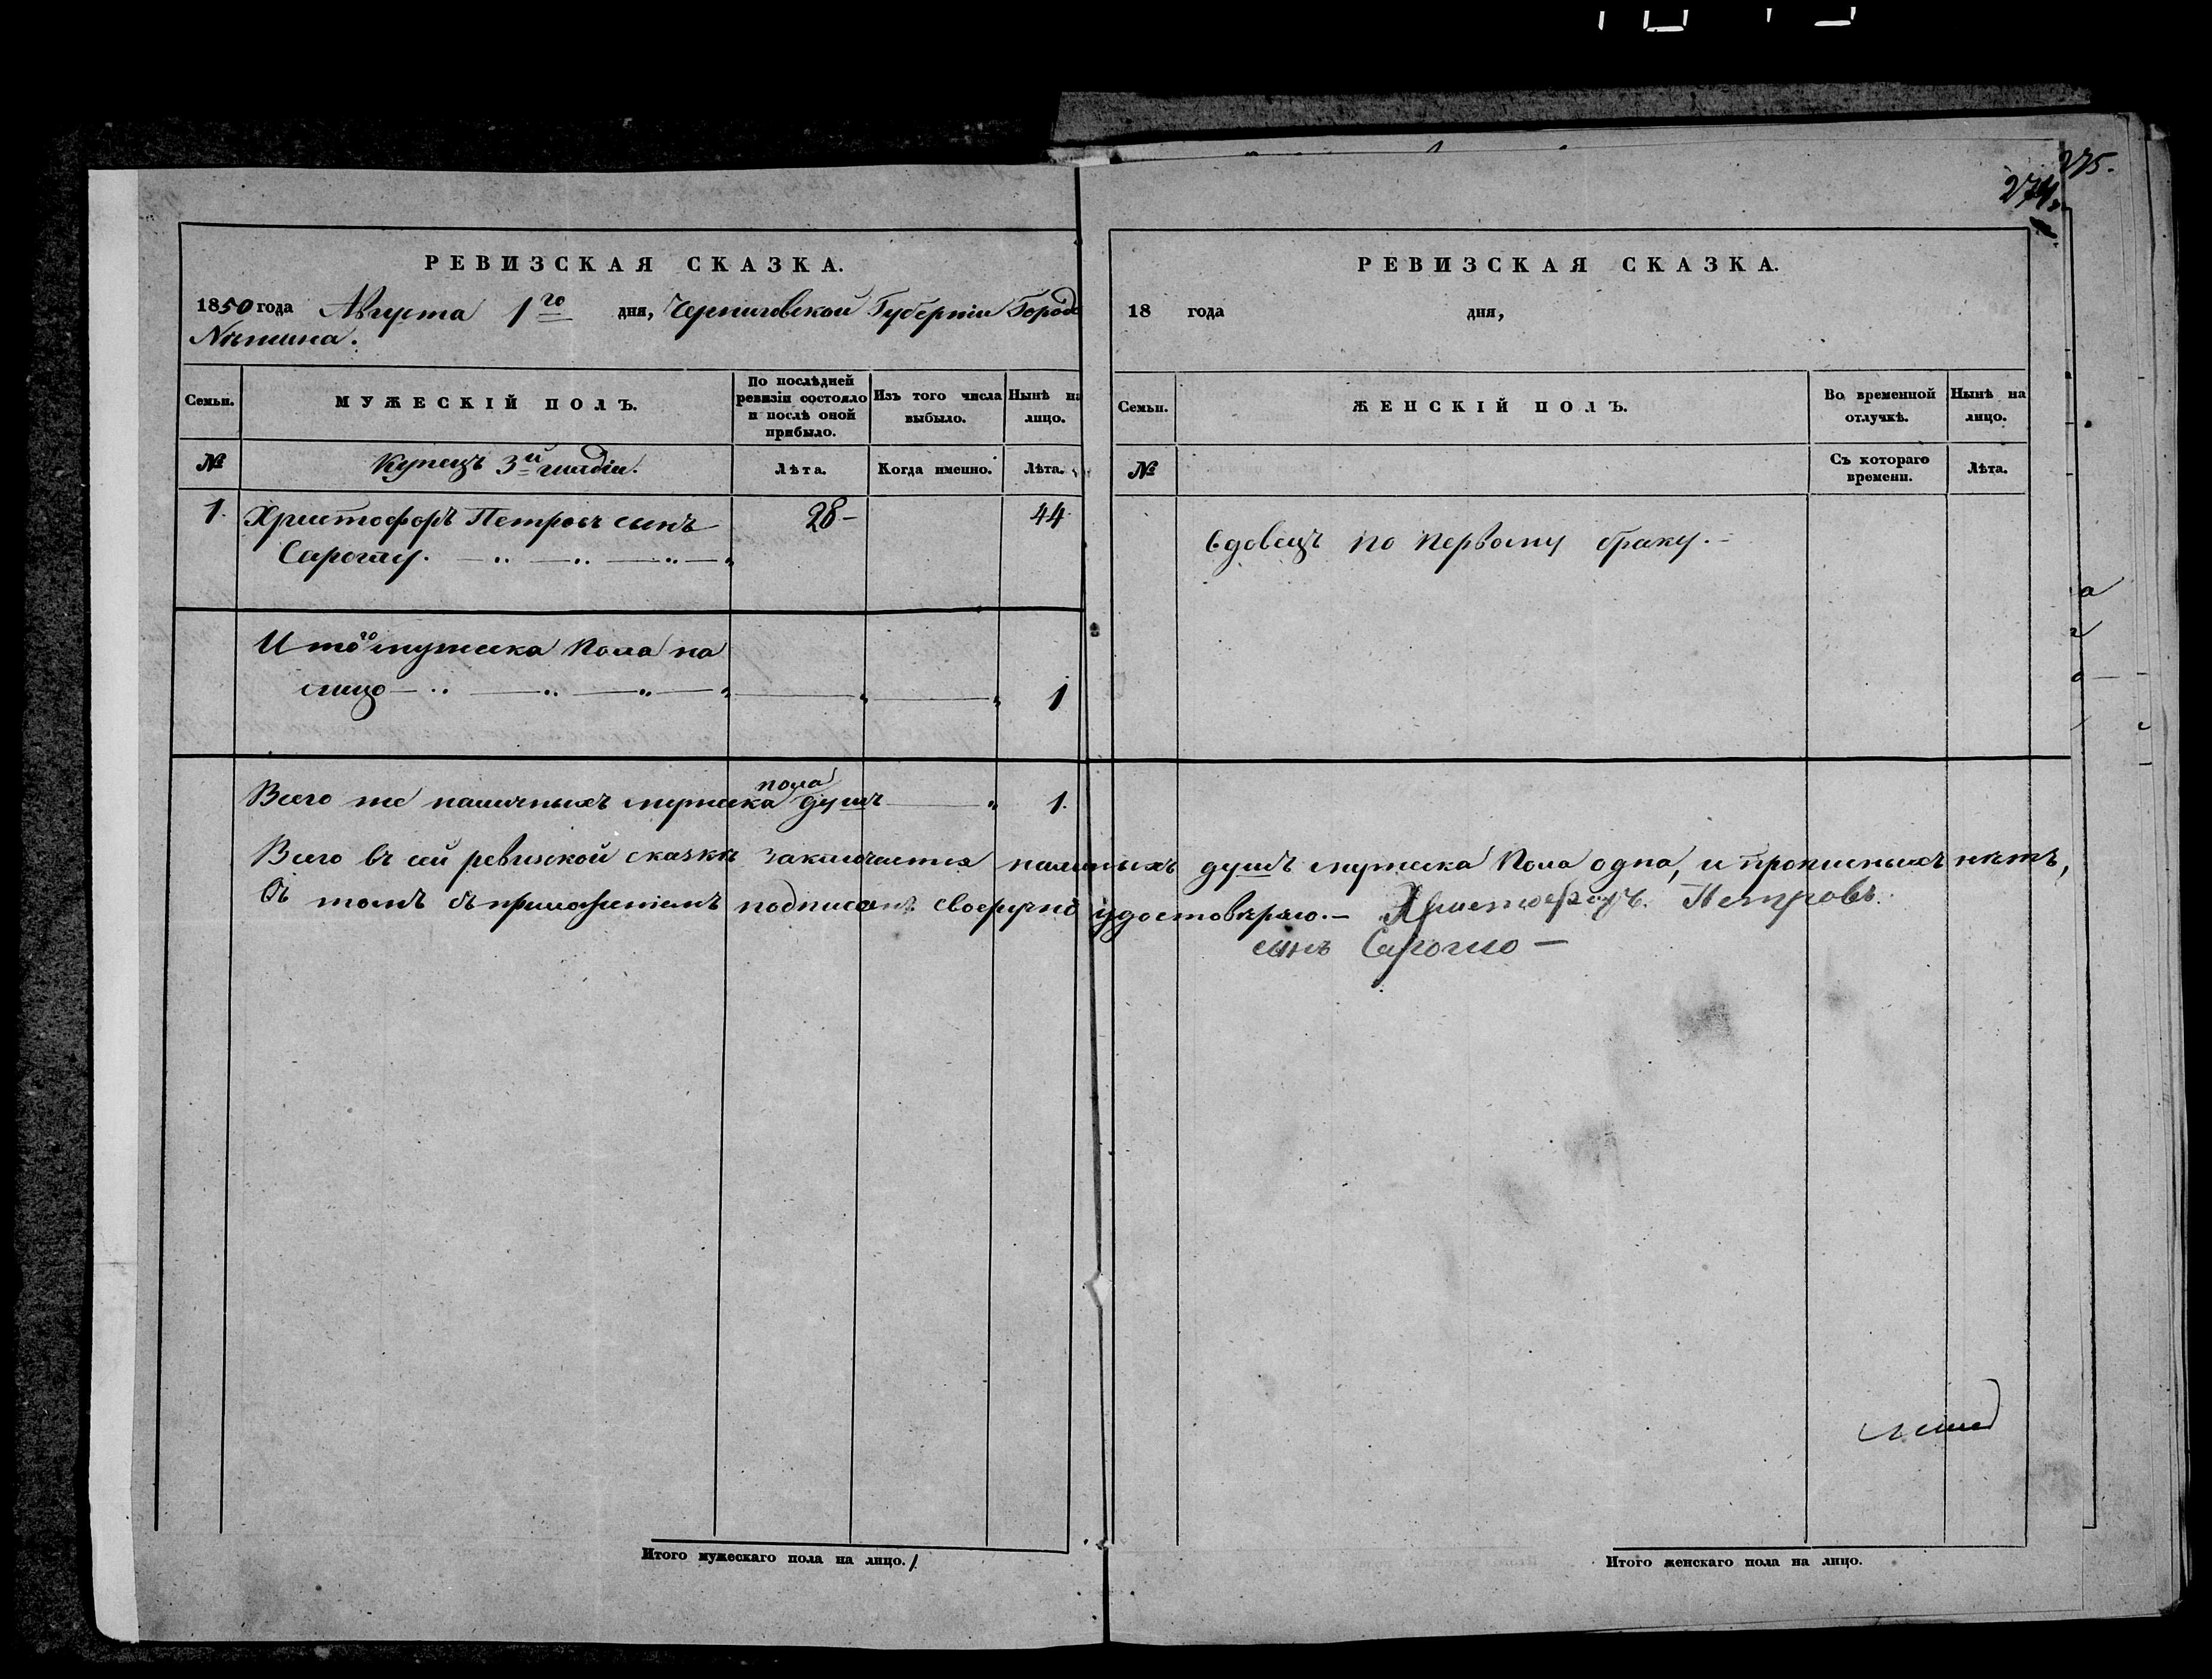 275.
274
РЕВИЗСКАЯ СКАЗКА.
1850 года Августа 1го дня, Черниговской Губерніи Города
Нѣжина.
Семьи.
МУЖЕСКІЙ ПОЛЪ.
По послѣдней
ревизіи состояло
и послѣ оной
прибыло.
Изъ того числа
выбыло.
Нынѣ на
лицо.
№
Купецъ 3й гильдіи.
Лѣта.
Когда именно.
Лѣта.
1. Христофоръ Петровъ сынъ 28 – 44
Итого мужеска пола на
лицо 1
пола
Всего же наличныхъ мужеска душъ 1.
РЕВИЗСКАЯ СКАЗКА.
18 года дня,
Семьи.
ЖЕНСКІЙ ПОЛЪ.
Во временной
отлучкѣ.
Нынѣ на
лицо.
№
Съ котораго
времени.
Лѣта.
вдовецъ по первому браку. –
Всего въ сей ревизской сказкѣ заключается наличныхъ душъ мужеска пола одна, и прописныхъ нѣтъ,
въ томъ съ приложеніемъ подписомъ своеручно удостовѣряю. – Христофоръ Петровъ
сынъ
Итого мужескаго пола на лицо. 1
Итого женскаго пола на лицо.